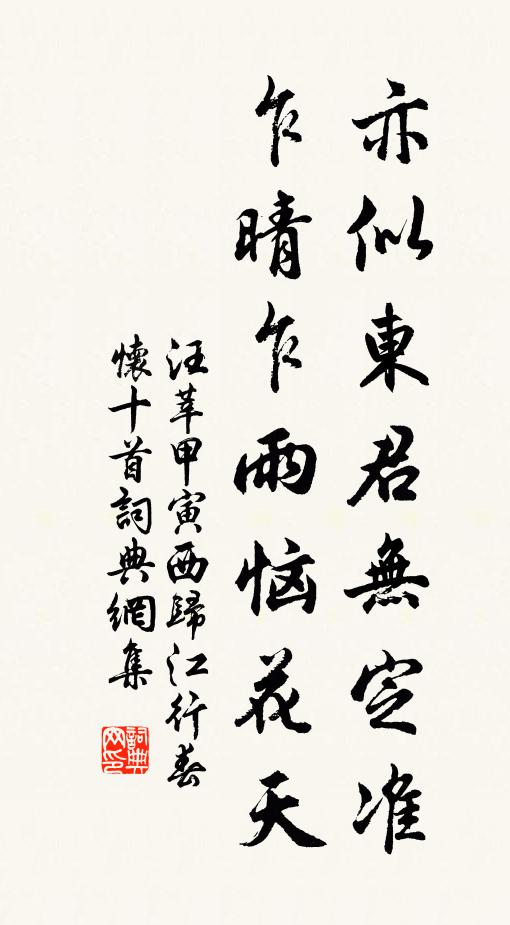 亦似東君無定准
乍晴乍雨恼花天
汪莘甲寅西歸江行春
懷十首詞典網集
詞典网印